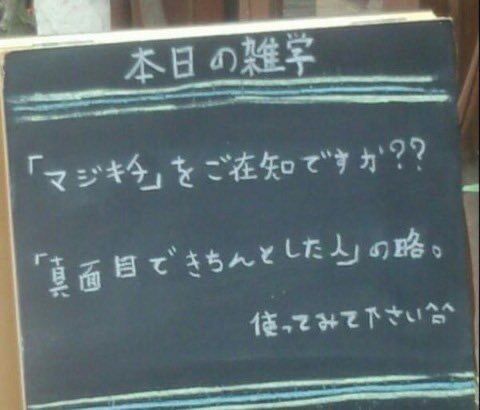 本日の雑学
「マジキチ」をご在知ですか??
「真面目できちんとした人」の略。
使ってみて下さい^^